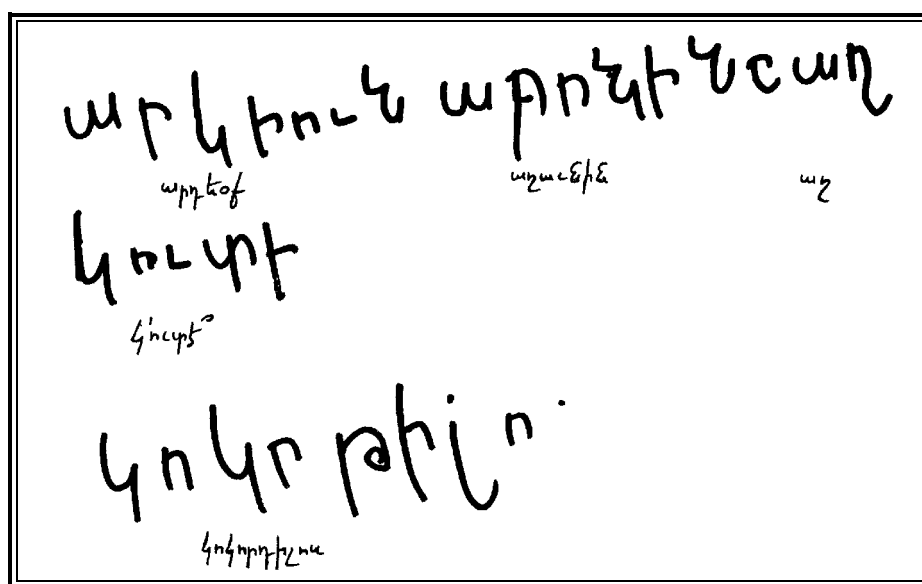 արկիուն աղ
արդեօք աղաւնին աղ
կուտի
կ՛ուտէ՞
կոկրթիլո.
կոկորդիլոս